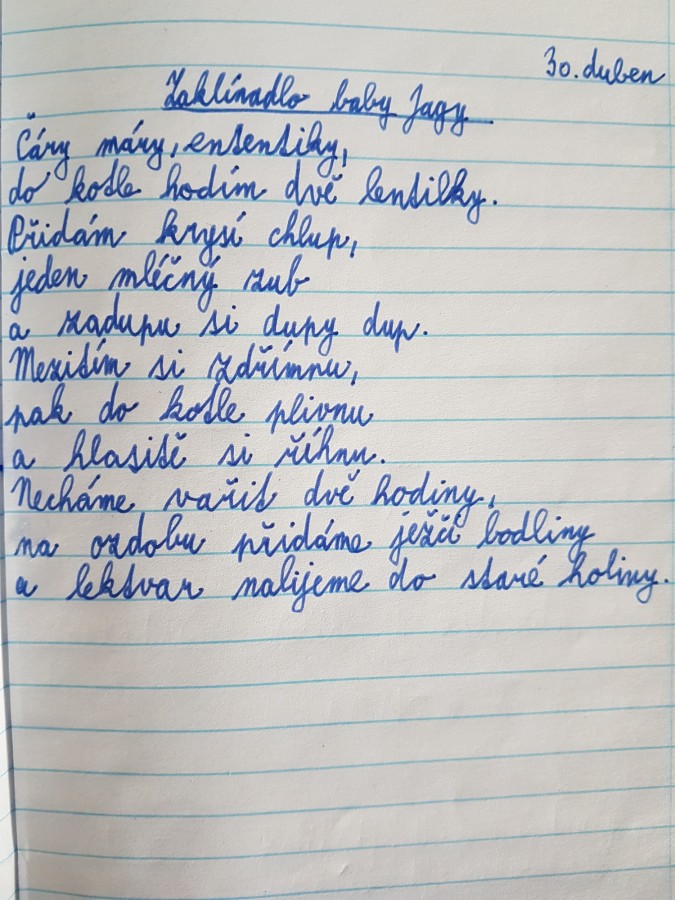 30. duben
Zaklínadlo baby Jagy
Čáry máry, ententiky,
do kotle hodím dvě lentilky.
Přidám krysí chlup,
jeden mléčný zub
a zadupu si dupy dup.
Mezitím si zdřímnu,
pak do kotle plivnu
a hlasitě si říhnu.
Necháme vařit dvě hodiny,
na ozdobu přidáme ježčí bodliny
a lektvar nalijeme do staré holiny.